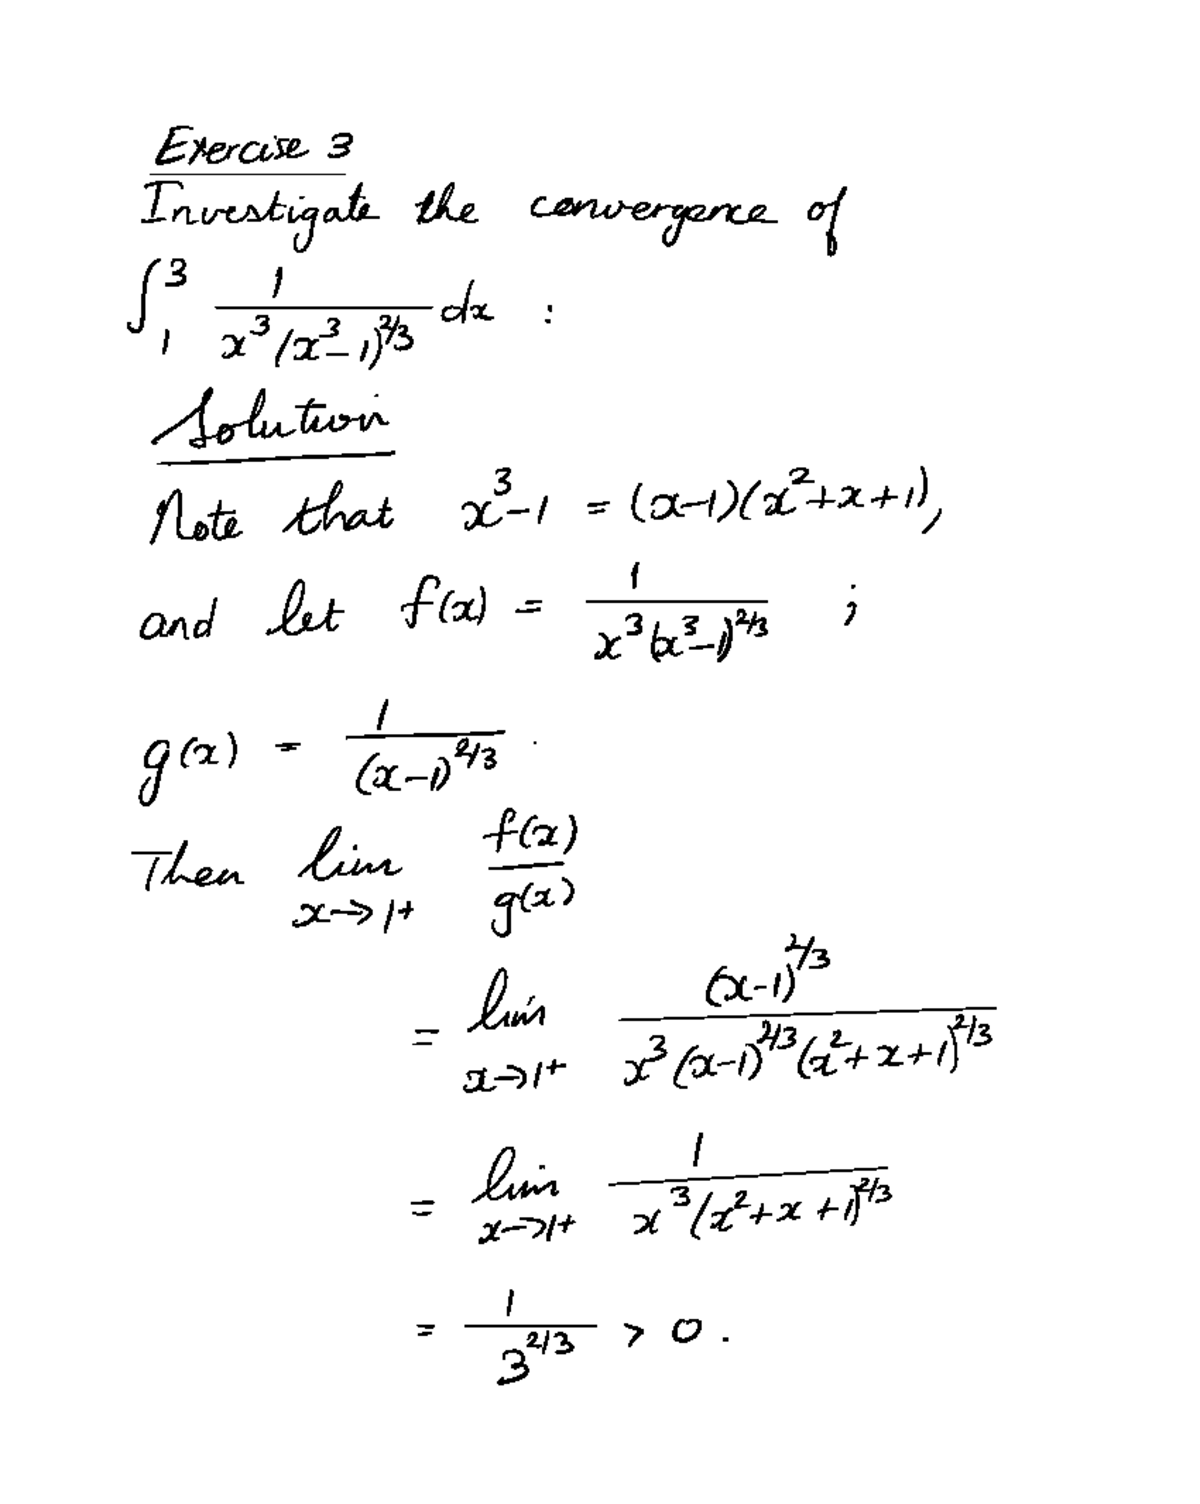 Exercise 3
Investigate the convergence of
∫₁³ 1/(x³(x³-1)^(2/3)) dx :
Solution
Note that x³-1 = (x-1)(x²+x+1),
and let f(x) = 1/(x³(x³-1)^(2/3)) ;
g(x) = 1/(x-1)^(2/3) .
Then lim x→1+ f(x)/g(x)
= lim x→1+ (x-1)^(2/3)/(x³(x-1)^(2/3)(x²+x+1)^(2/3))
= lim x→1+ 1/(x³(x²+x+1)^(2/3))
= 1/3^(2/3) > 0 .